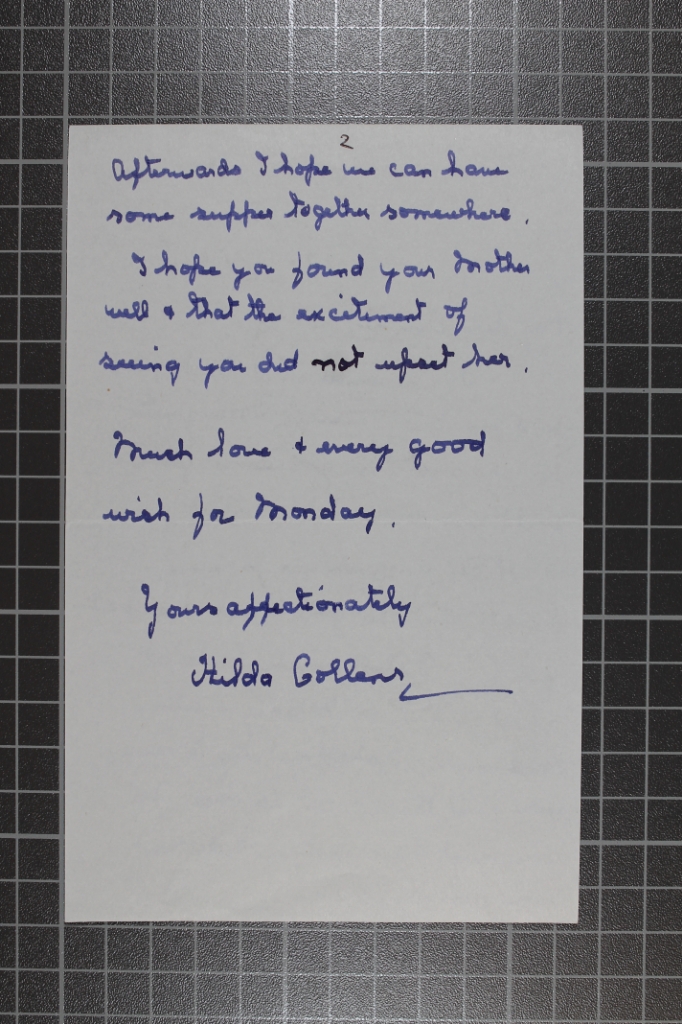 2
Afterwards I hope we can have
some supper together somewhere.
I hope you found your Mother
well & that the excitement of
seeing you did not upset her.
Much love & every good
wish for Monday.
Yours affectionately
Hilda Collens